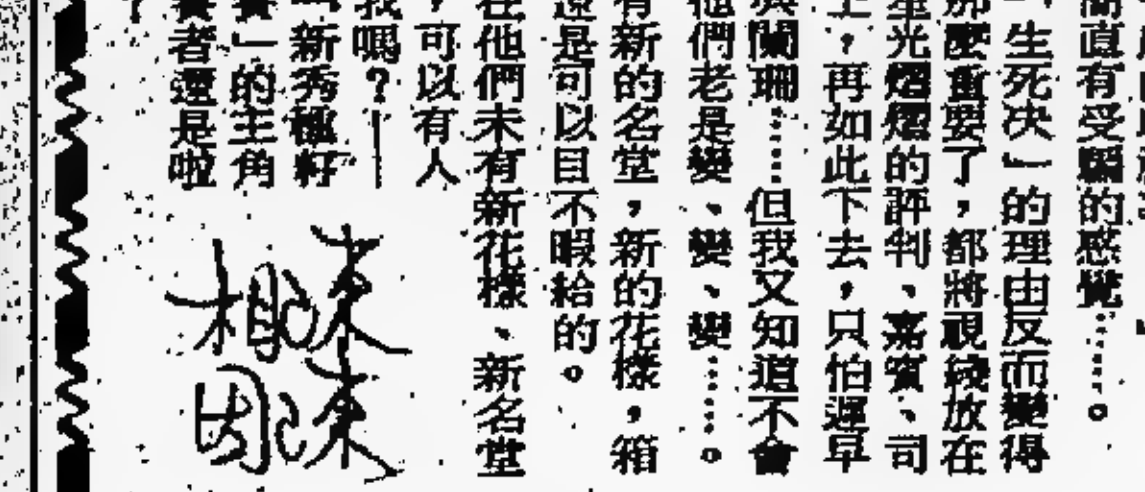 直有受騙的感覺……。
「生死决」的理由反而變得
那麼重要了，都將視綫放在
星光熠熠的評判、嘉賓、司
上，再如此下去，只怕遲早
闌珊……但我又知道不會
他們老是變、變、變……。
有新的名堂，新的花樣，箱
還是可以目不暇給的。
在他們未有新花樣、新名堂
，可以有人
我嗎？——
新秀
」的主角
者還是啦
？